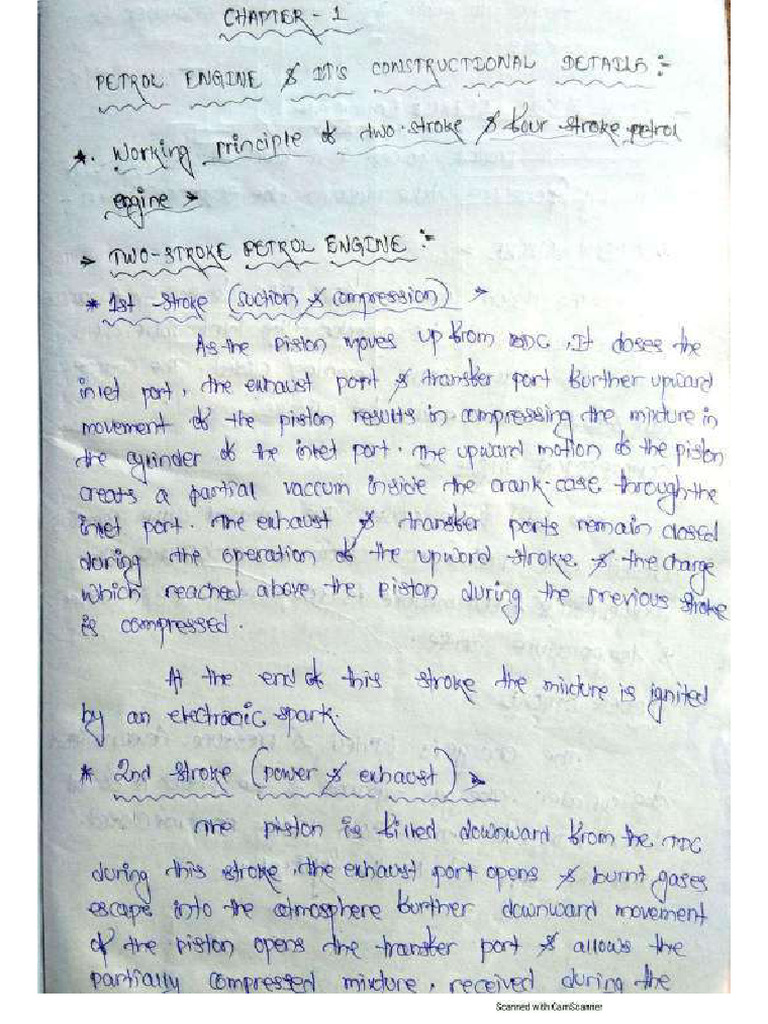 CHAPTER - 1
PETROL ENGINE & IT'S CONSTRUCTIONAL DETAILS :-
*. Working principle of two-stroke & four stroke petrol
engine >
> TWO-STROKE PETROL ENGINE :-
* 1st stroke (suction & compression) >
As the piston moves up from BDC, It closes the
inlet port, the exhaust port & transfer port further upward
movement of the piston results in compressing the mixture in
the cylinder of the inlet port. The upward motion of the piston
creats a partial vaccum inside the crank-case through the
inlet port. The exhaust & transfer ports remain closed
during the operation of the upward stroke & the charge
which reached above the piston during the previous stroke
is compressed.
At the end of this stroke the mixture is ignited
by an electronic spark.
* 2nd stroke (power & exhaust) >
The piston is killed downward from the TDC
during this stroke, the exhaust port opens & burnt gases
escape into the atmosphere further downward movement
of the piston opens the transfer port & allows the
partially compressed mixture, received during the
Scanned with CamScanner